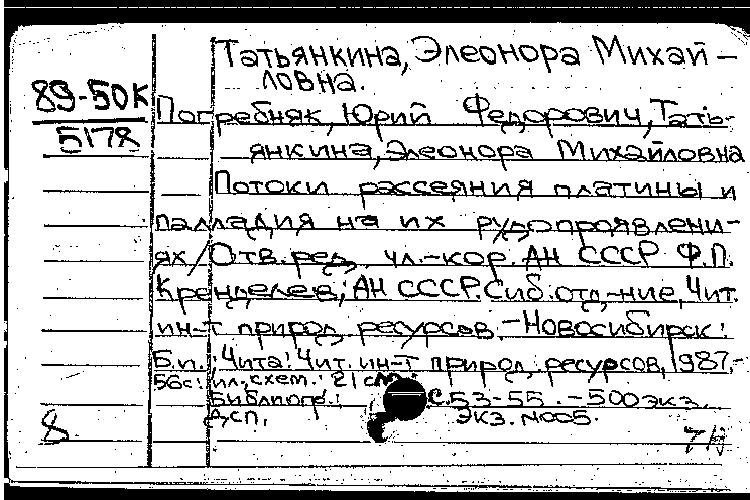 Татьянкина, Элеонора Михай-
ловна.
89-50К
5178
Погребняк, Юрий Федорович, Тать-
янкина, Элеонора Михайловна
Потоки рассеяния платины и
палладия на их рудопроявлени-
ях / Отв. ред. чл.-кор. АН СССР Ф.П.
Кренделев; АН СССР. Сиб. отд-ние, Чит.
ин-т природ. ресурсов. - Новосибирск:
Б.и.; Чита: Чит. ин-т природ. ресурсов, 1987.-
56с.: ил., схем.: 21 см.
Библиогр.: с. 53-55. - 500 экз.
Дсп. Экз. N005.
8